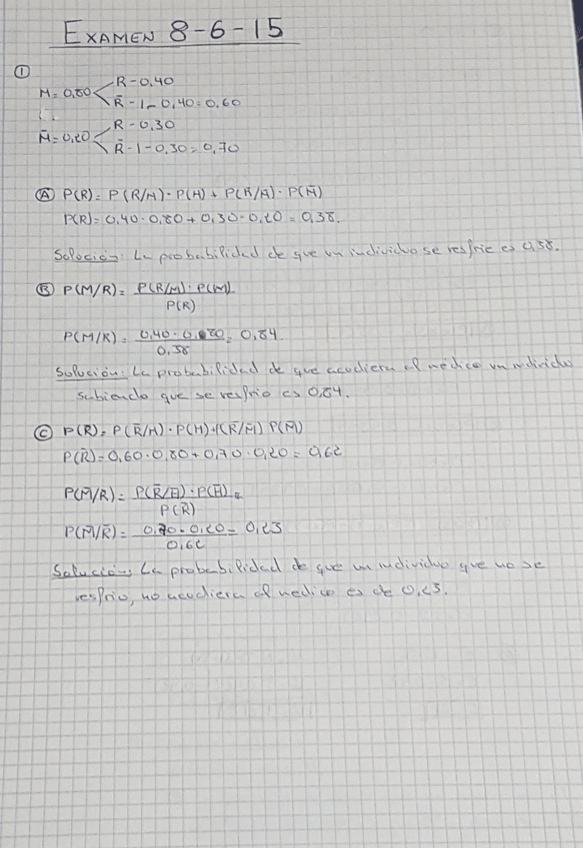 EXAMEN 8-6-15
①
M = 0,80 R - 0,40
R̄ - 1 - 0,40 = 0,60
M̄ = 0,20 R - 0,30
R̄ - 1 - 0,30 = 0,70
Ⓐ P(R) = P(R/M) · P(M) + P(R/M̄) · P(M̄)
P(R) = 0,40 · 0,80 + 0,30 · 0,20 = 0,38.
Solución: La probabilidad de que un individuo se resfrie es 0,38.
Ⓑ P(M/R) = P(R/M) · P(M)
P(R)
P(M/R) = 0,40 · 0,80 = 0,84
0,38
Solución: La probabilidad de que acudiera al médico un individuo
sabiendo que se resfrio es 0,84.
Ⓒ P(R) = P(R̄/M) · P(M) + P(R̄/M̄) P(M̄)
P(R̄) = 0,60 · 0,80 + 0,70 · 0,20 = 0,62
P(M̄/R) = P(R̄/M̄) · P(M̄) =
P(R̄)
P(M̄/R̄) = 0,70 · 0,20 = 0,23
0,62
Solución: La probabilidad de que un individuo que no se
resfrio, no acudiera al medico es de 0,23.